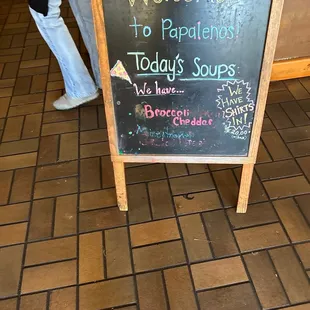 Welcome
to Papalenos!
Today's Soups
We have...
Broccoli
Cheddar
We
have
SHIRTS
IN